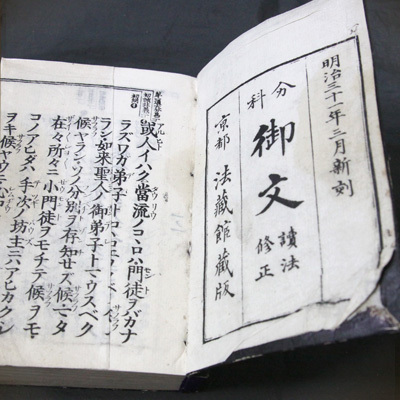 明治三十一年三月新刻
分科
御文
讀法
修正
京都 法藏館藏版
或人イハク當流ノコヽロハ門徒ヲバカナ
ラズワガ弟子トコヽロエ
ラン如来聖人ノ御弟子トマウスベク
候ヤランソノ分別ヲ存知セズ候マタ
在々所々ニ小門徒ヲモチテ候ヲモ
コノアヒダハ手次ノ坊主ニハアヒカクシ
ヲキ候ヤウニ